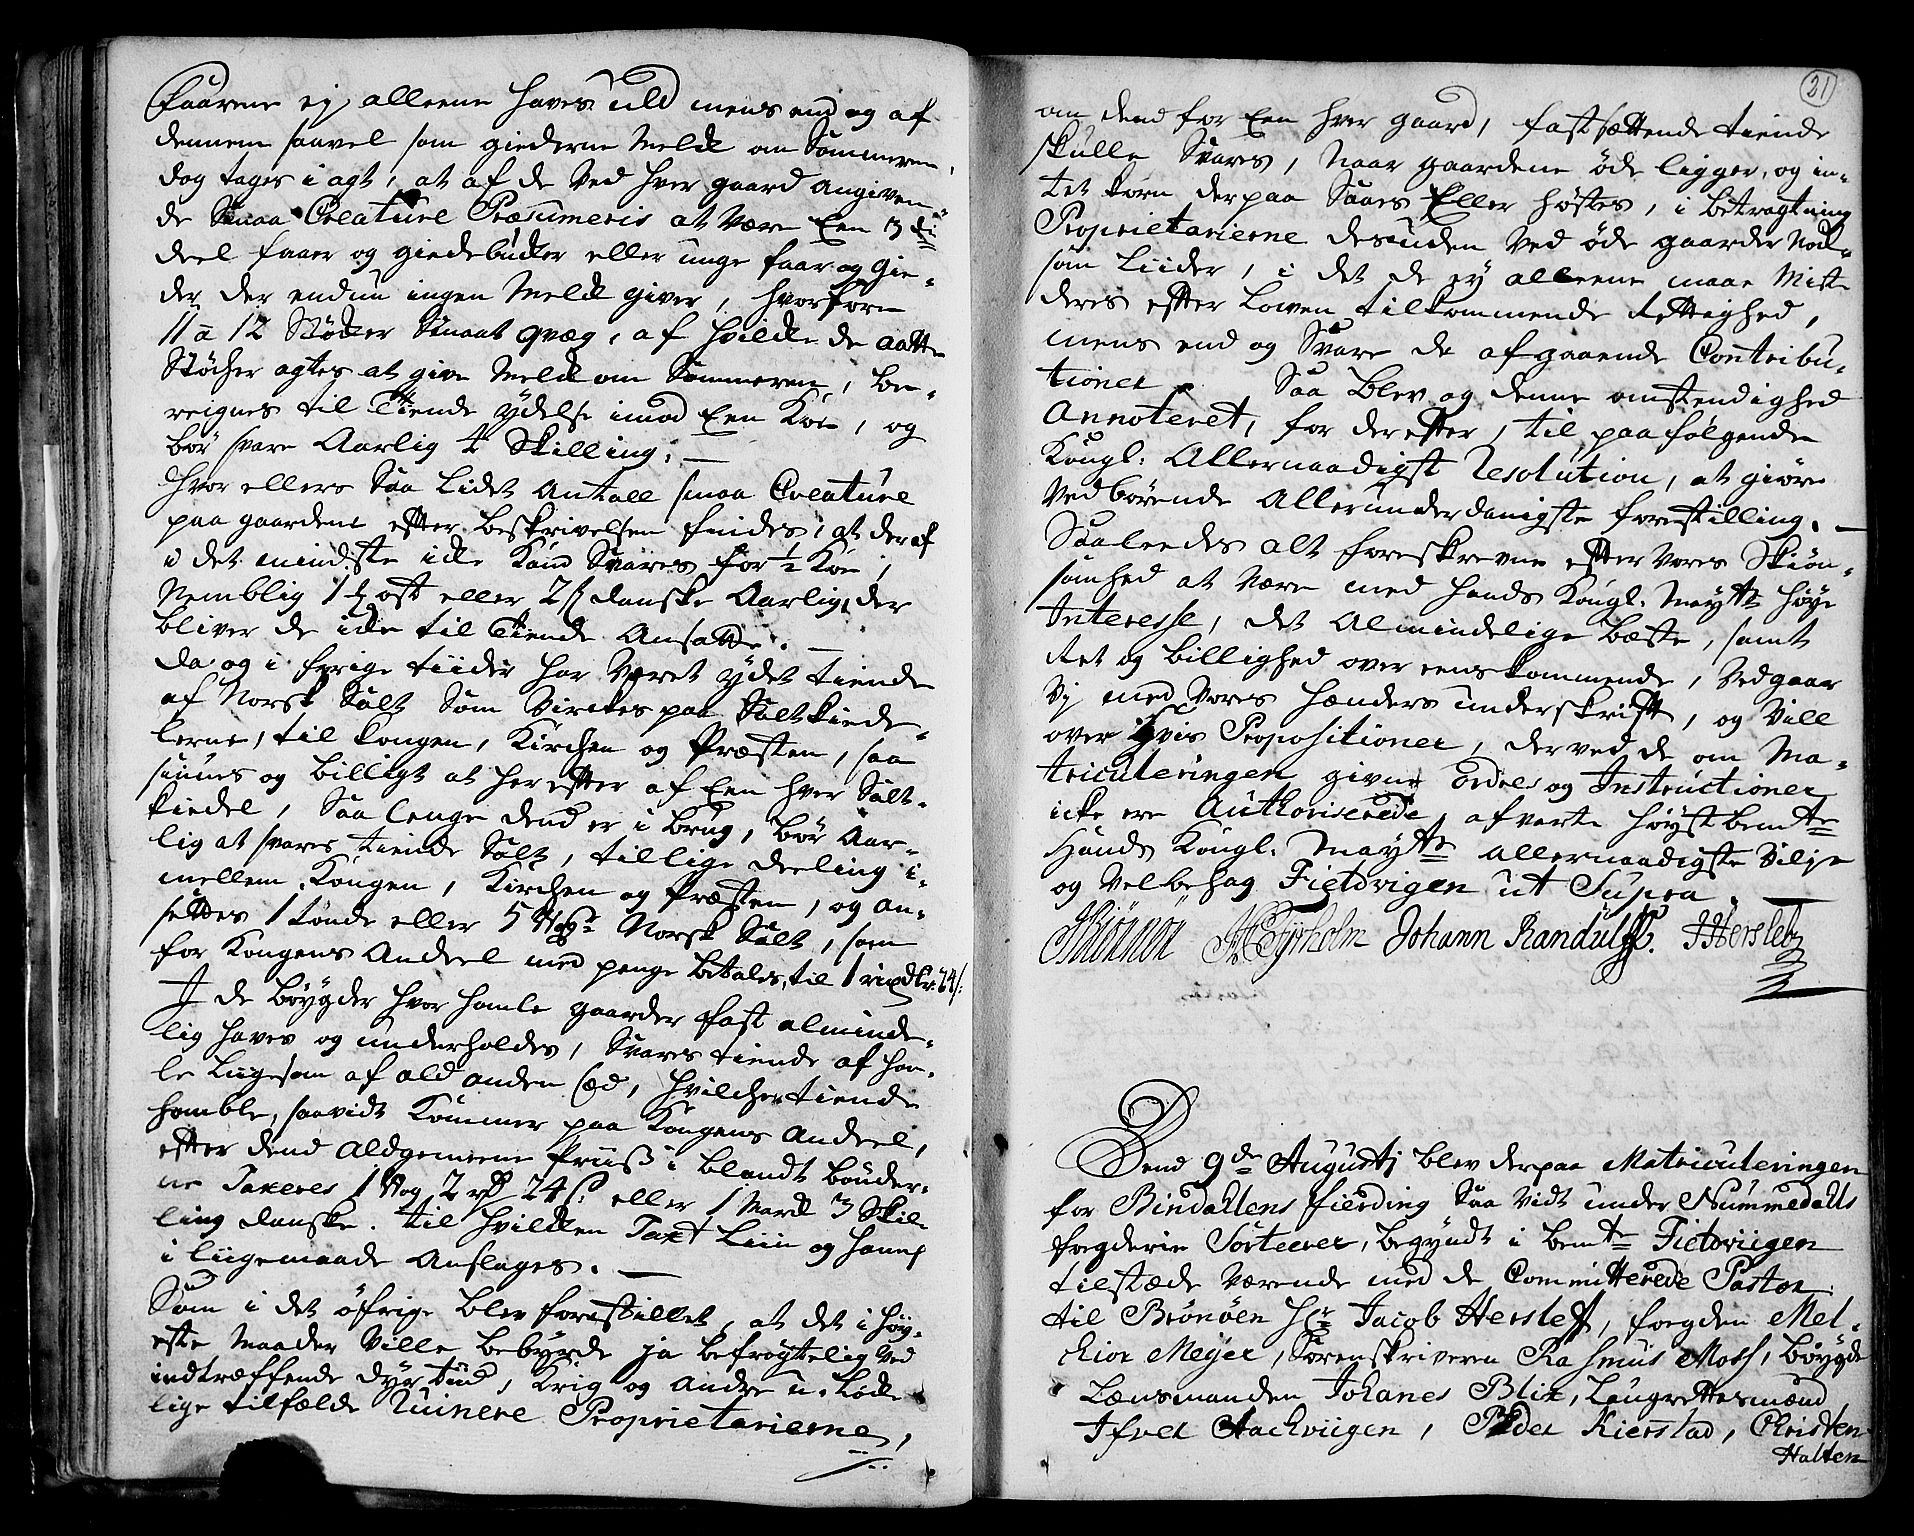 Faarene ej alleene haves uld mens end og af
dennem saavel som giederne Melck om Sommeren,
dog tages i agt, at af de ved hver gaard angiven-
de Smaa Creature Præsumeris at være Een 3die
deel faar og giedebucker eller unge faar og Gie-
der der endnu ingen Melck giver, hvorfore
11 à 12 Støcker Smaat qvæg, af hvilcke de aatte
Støcher agtes at give Melck om Sommeren, be-
reignes til Tiende ydelse imod Een Koe, og
bør svare Aarlig 4 Skilling. —
Hvor ellers Saa Lidet Antall smaa Creature
paa gaardene efter beskrivelsen findes, at deraf
i det mindste icke Kand Svares for ½ Koe,
Nemblig 1 ℔ ost eller 2 ß danske Aarlig, der
bliver de icke til Tiende Ansatte. —
Da og i forige tiider har Været ydet tiende
af Norsk Salt Som Virckes paa Saltkiede-
lerne, til Kongen, Kirchen og Præsten, saa
siunes og billigt at her efter af Een hver Salt-
kiedel, Saa lenge dend er i brug, bør Aar-
lig at svares tiende Salt, tillige deeling i-
mellem Kongen, Kirchen og Præsten, og an-
settes 1 tønde eller 5 Norsk Salt, som
for Kongens Andeel med penge betales, til 1 rixdlr: 24 ß:
I de bøygder hvor homle gaarder fast alminde-
lig haves og underholdes, Svares tiende af hom-
le Liigesom af ald anden Sæd, hvilchen tiende
homble, saavidt Kommer paa Kongens Andeel,
efter dend Aldgemeene Priiß i blandt bønder-
ne Taxeres 1 Wog 2 24 ß. eller 1 Mark 3 Skil-
ling danske. til hvilcken Taxt Liin og hamp
i liigemaade Anslages. —
Som i det øfrige blev forestillet, at det i høy-
este Maader Ville bebyrde ja befrygtelig Ved
indtræffende dyr tiid, Krig og Andre u-Løcke-
lige tilfælde Ruinere Proprietarierne,
21
om dend for Een hver gaard, fastsættende tiende
skulle Svares, Naar gaardene øde ligger, og in-
tet korn derpaa Saaes Eller høstes, i betragtning
Proprietarierne desuden ved øde gaarder Nock-
som Liider, i det de ey alleene maae Miste
deres efter Loven tilkommende Rettighed,
mens end og Svare de afgaaende Contribu-
tioner. Saa blev og denne omstendighed
Annoteret, for derefter, til paafølgende
Kongl: Allernaadigst Resolution, at giøre
Vedbørende Allerunderdanigste forestilling. —
Saaledes alt foreskrevne efter Vores Skiøn-
somhed at være med Hands Kongl: Maytts høye
Interesse, det Almindelige beste, samt
Ret og billighed over eenskommende, Vedgaar
Vj med Vores hænders underskrift, og Vill
over hvis Propositioner, derved de om Ma-
triculeringen givne ordres og Instructioner
icke ere Authoriserede, afvarte høyst bemte
Hands Kongl: Maytts allernaadigste Vilje
og Velbehag Fieldvigen ut Supra.
Johann Randulff. JHersleb
Dend 9de Augustj blev derpaa Matriculeringen
for Bindallens fierding Saa vidt under Nummedalls
fogderie Sorteerer, begyndt i bemte Fieldviigen
tilstæde værende med de Committerede Pastor
til Brønøen Hr Jacob Hersleff, fogden Mel-
chior Meyer, Sorenskriveren Rasmus Moss, bøygde
Lænsmanden Johanes Blix, Laugrettesmænd
Ifver Hachviigen, Peder Kierstad, Christen
Halten